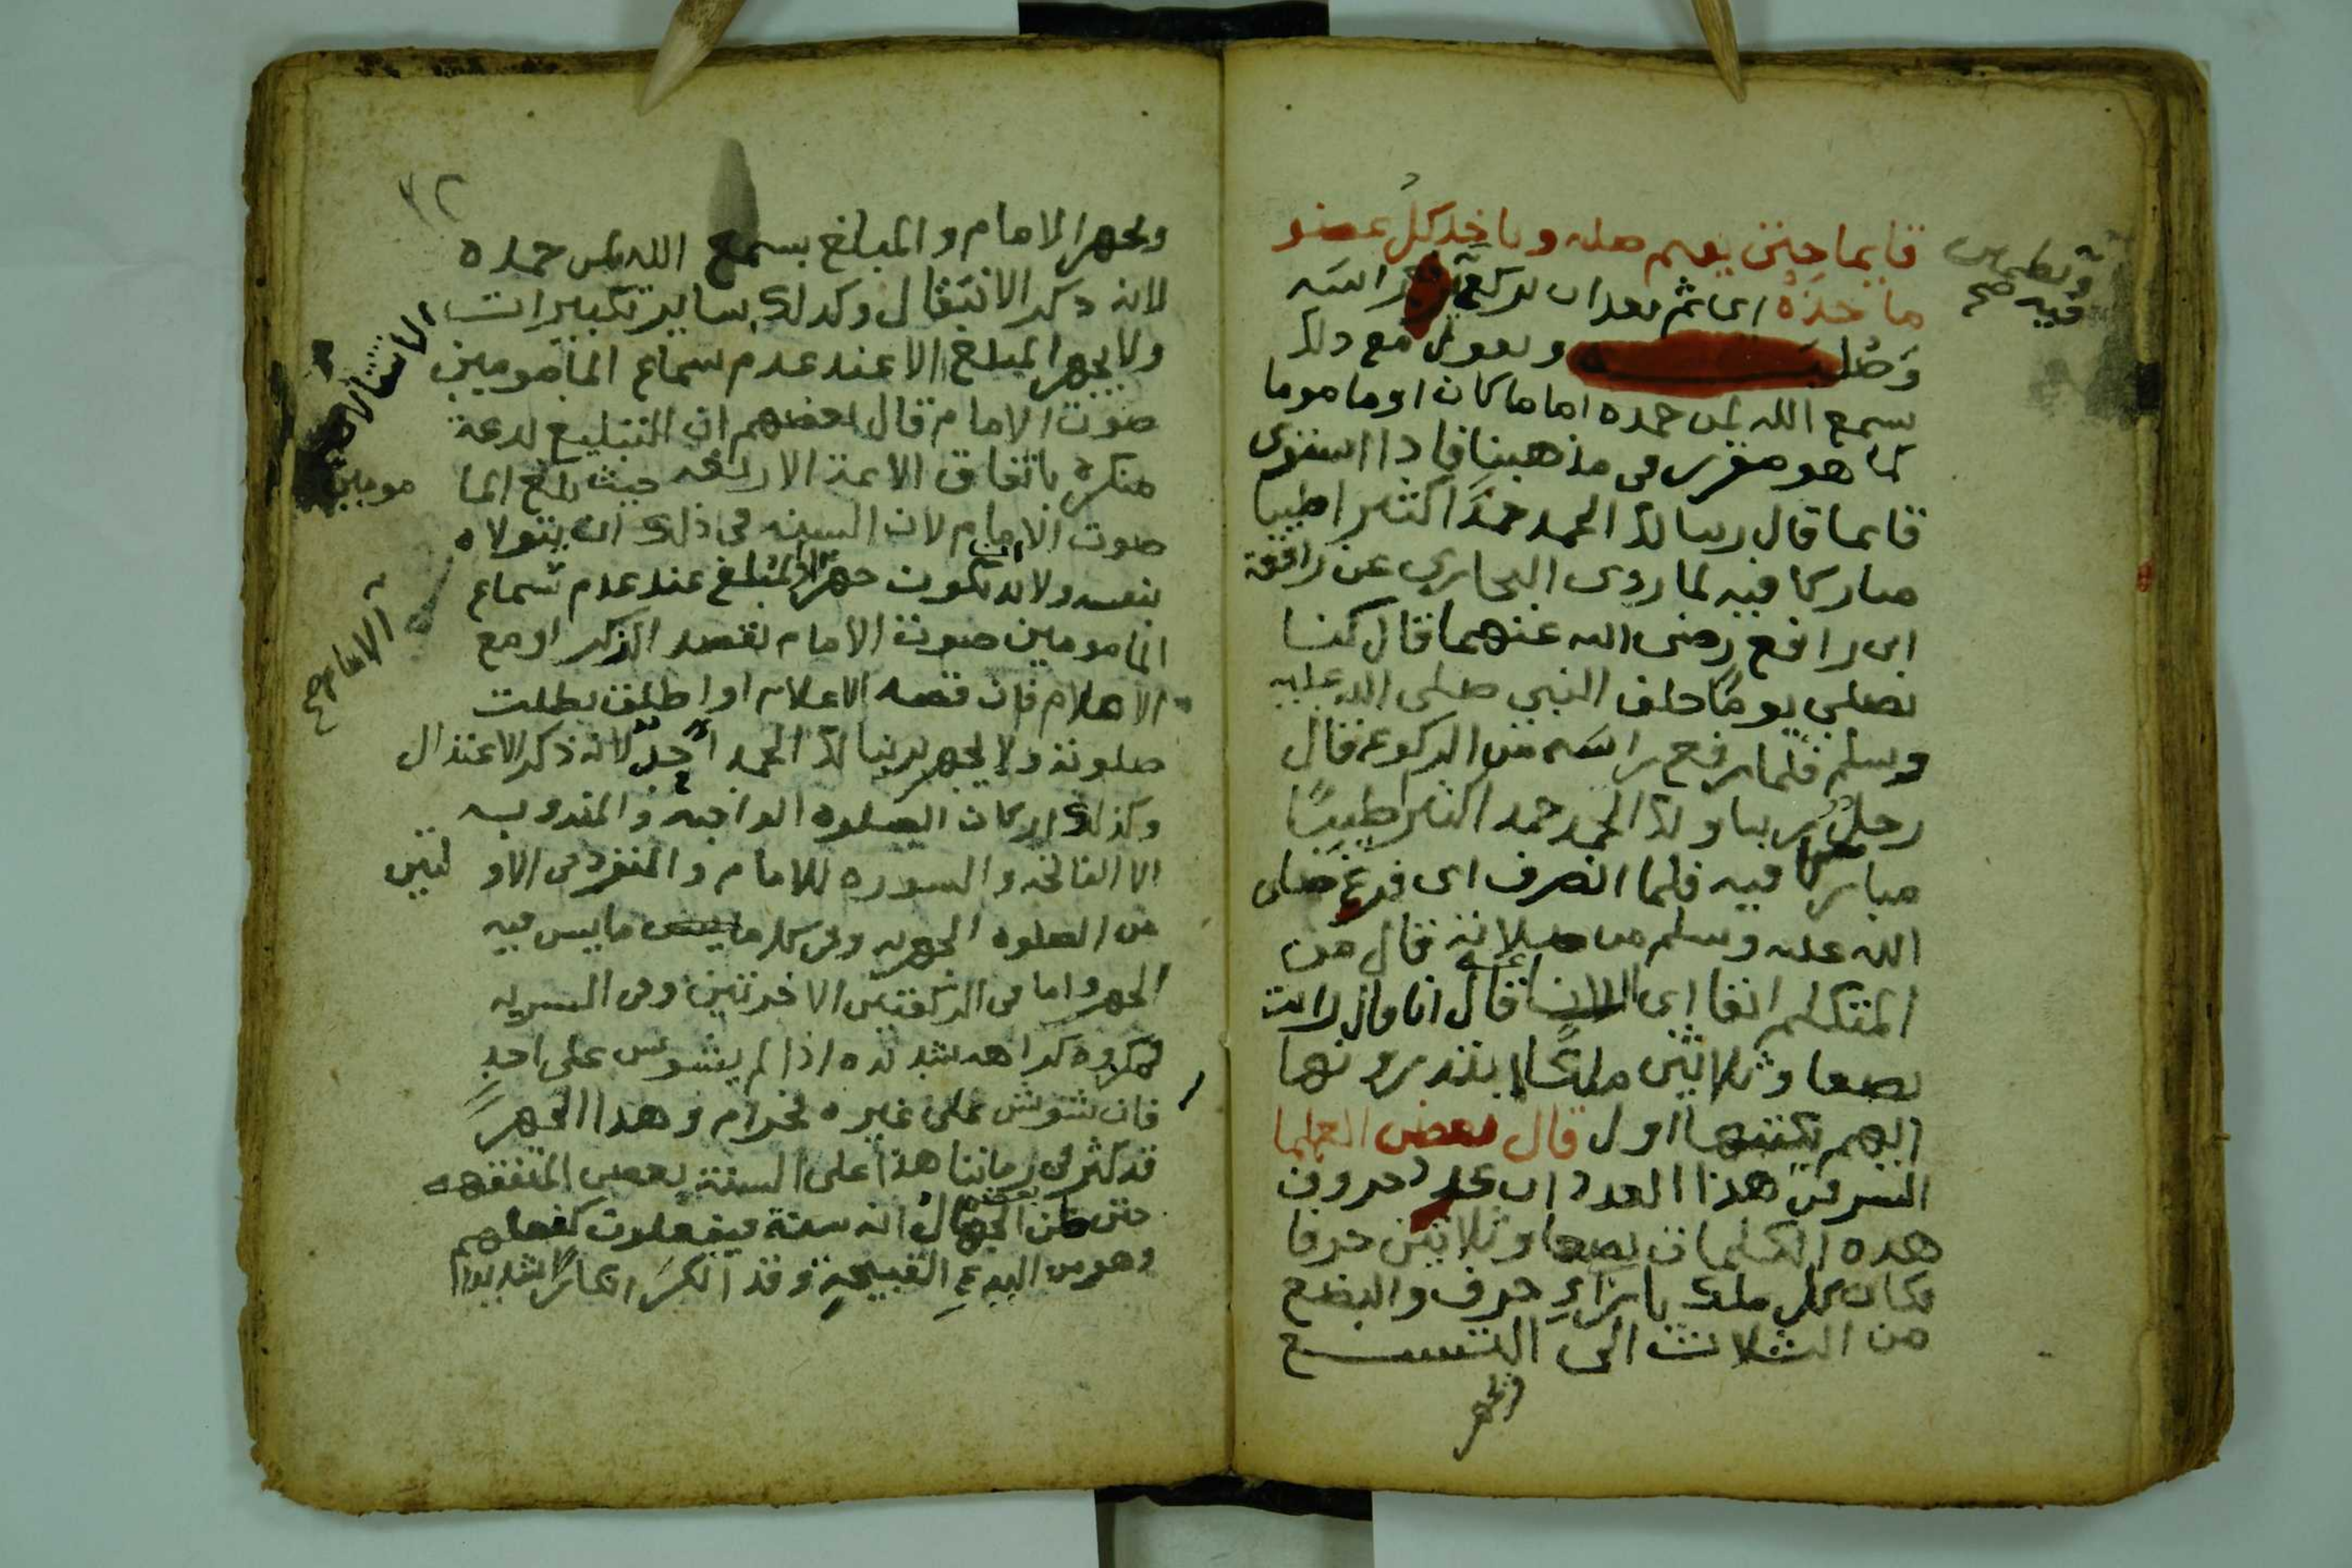 قايما حتى يقيم صلبه وياخذ كل عضو
ماخذه اى ثم بعد ان يركع يرفع راسه
وصلبه ويقول مع ذلك
سمع الله لمن حمده اماما كان او ماموما
كما هو مقرر فى مذهبنا فاذا استوى
قايما قال ربنا لك الحمد حمدا كثيرا طيبا
مباركا فيه لما روى البخاري عن رافعة
ابن رافع رضى الله عنهما قال كنا
نصلي يوما خلف النبي صلى الله عليه
وسلم فلما رفع راسه من الركوع قال
رجل ربنا ولك الحمد حمدا كثيرا طيبا
مباركا فيه فلما انصرف اى فرغ صلى
الله عليه وسلم من صلاته قال من
المتكلم انفا اى الان قال انا قال رايت
بضعا وثلاثين ملكا يبتدرونها
ايهم يكتبها اول قال بعض العلما
السر فى هذا العدد ان عدد حروف
هذه الكلمات بضعا وثلاثين حرفا
فكان كل ملك بازاء حرف والبضع
من الثلاث الى التسع
ويجهر
ويطمين
فيه صح
٣٢
ويجهر الامام والمبلغ بسمع الله لمن حمده
لانه ذكر الانتقال وكذلك ساير تكبيرات
الانتقالات
ولا يجهر المبلغ الا عند عدم سماع المامومين
صوت الامام قال بعضهم ان التبليغ بدعة
منكرة باتفاق الايمة الاربعة حيث بلغ المامومين
صوت الامام لان السنه فى ذلك ان يتولاه
الامام صح
بنفسه ولابد ان يكون جهر المبلغ عند عدم سماع
المامومين صوت الامام بقصد الذكر او مع
الاعلام فان قصد الاعلام او اطلق بطلت
صلوته ولا يجهر بربنا لك الحمد احد لانه ذكر الاعتدال
وكذلك اركان الصلوه الواجبه والمندوبه
الا الفاتحه والسوره للامام والمنفرد فى الاولتين
من الصلوه الجهريه وفى كل ما ليس فيه
الجهر واما فى الركعتين الاخرتين وفى السريه
فمكروه كراهه شديده اذا لم يشوش على احد
فان شوش على غيره فحرام وهذا الجهر
قد كثر فى زماننا هذا على السنة بعض المتفقهه
حتى ظن بعض الجهال انه سنة فيفعلون كفعلهم
وهو من البدع القبيحة وقد انكر انكارا شديدا